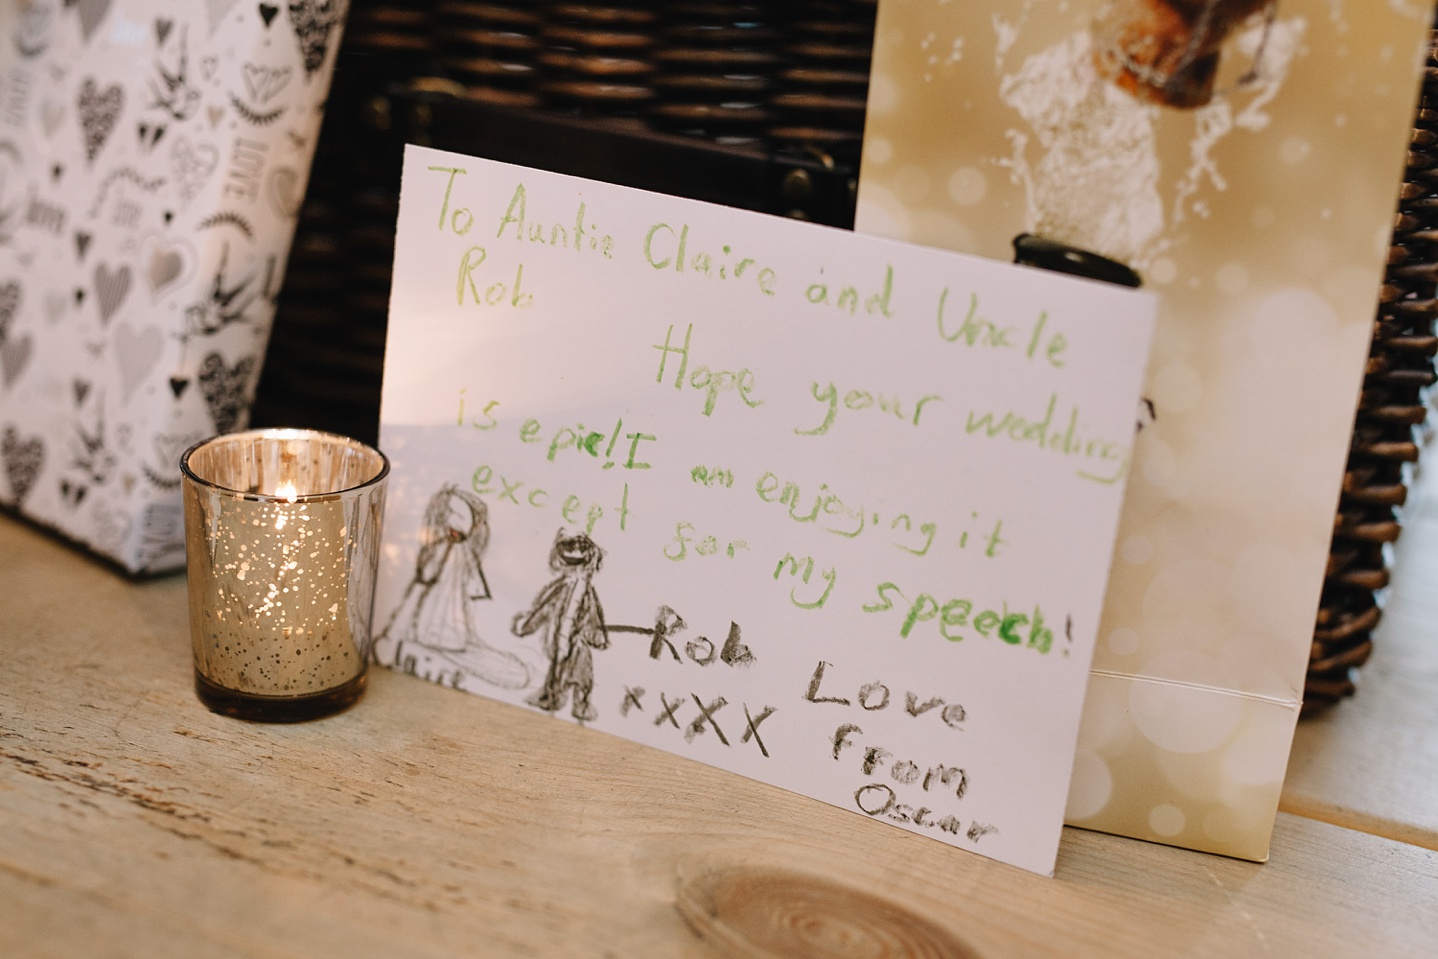 To Auntie Claire and Uncle
Rob
Hope your wedding
is epic! I am enjoying it
except for my speech!
Rob
Claire
xxXXX
Love
from
Oscar
LOVE